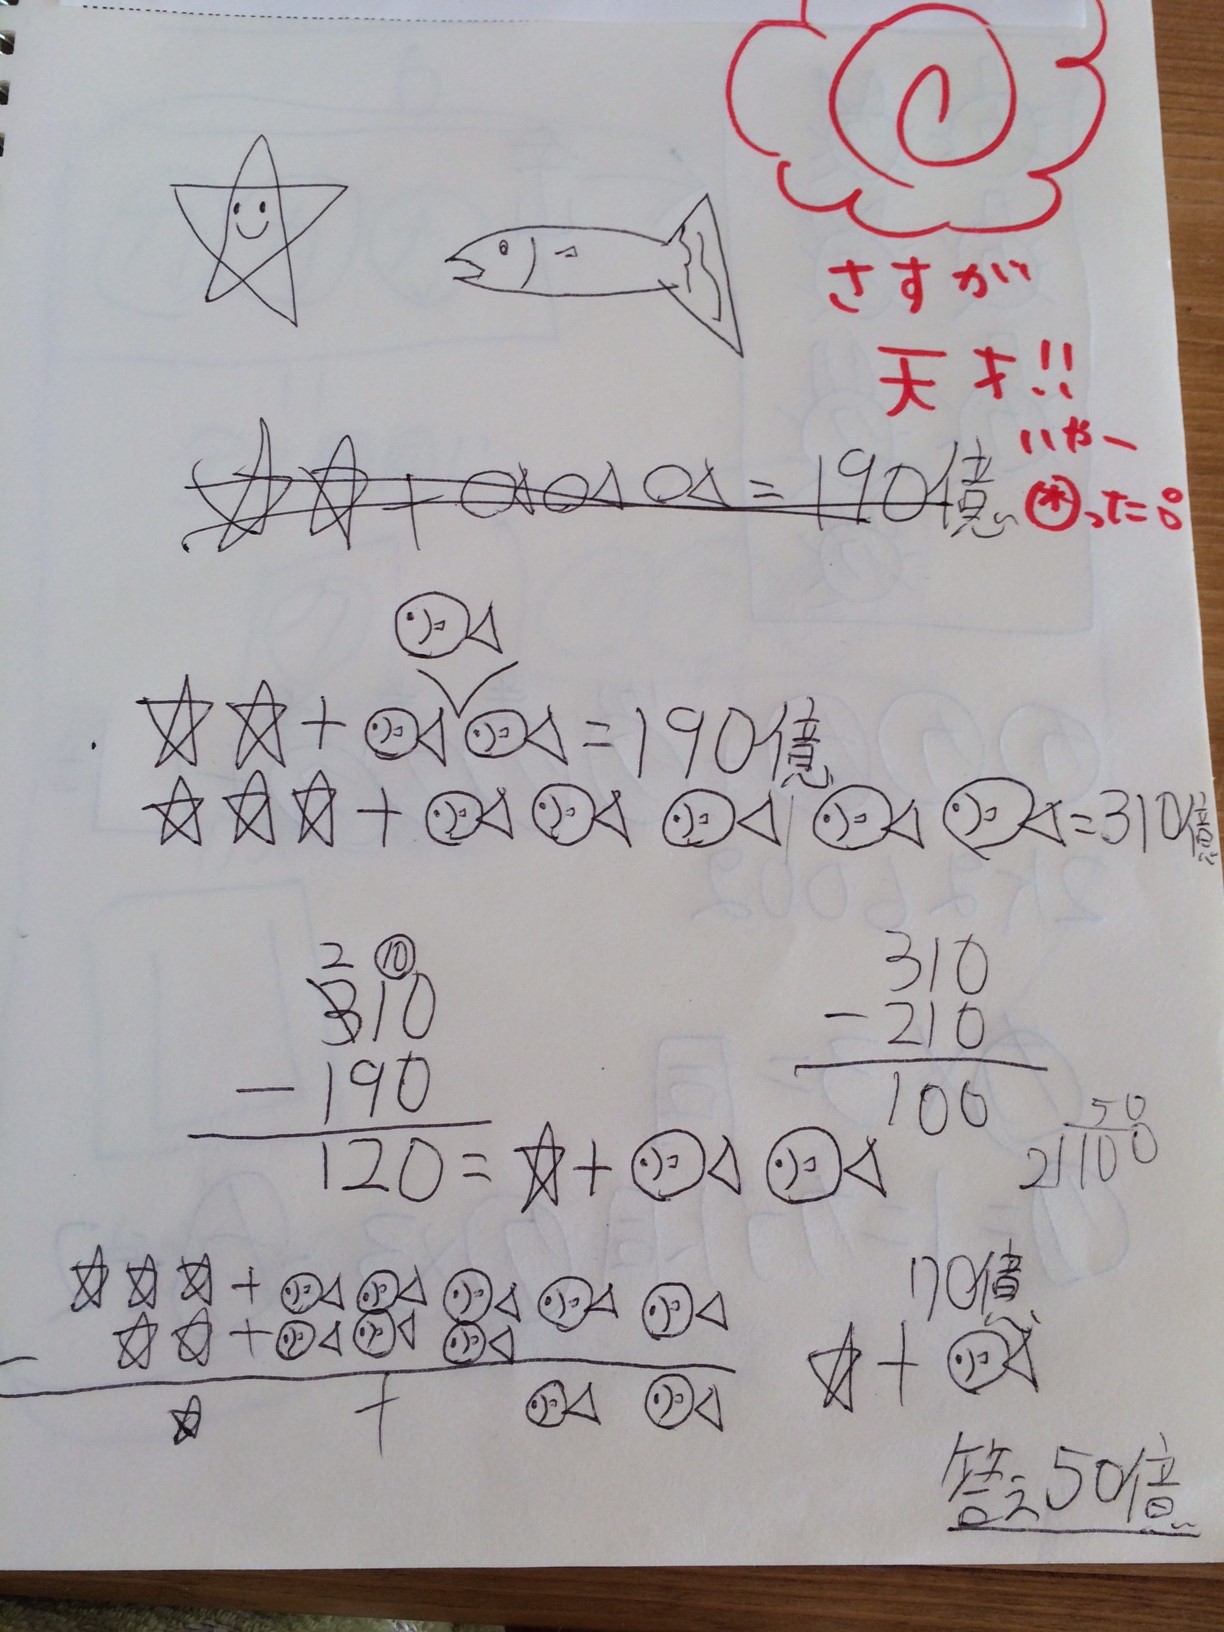 さすが
天才!!
いやー
困った
☆☆+ = 190億
☆☆+ = 190億
☆☆☆+ = 310億
2 10
310
-190
120=☆+
310
-210
100
50
2)100
☆☆☆+
-☆☆+
☆ +
70億
☆+
答え50億